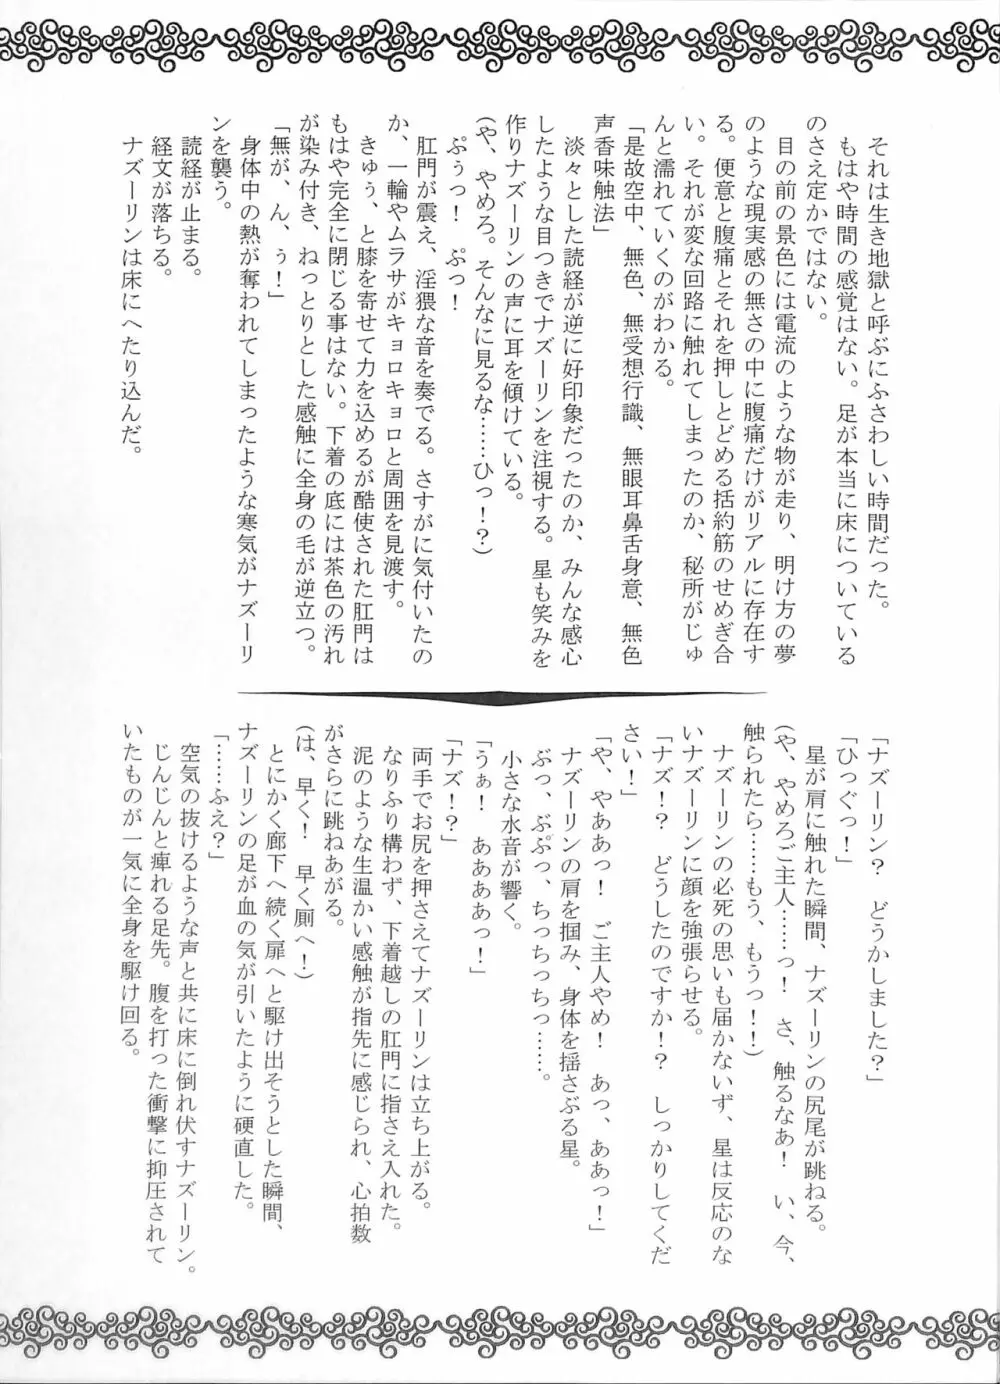 それは生き地獄と呼ぶにふさわしい時間だった。
もはや時間の感覚はない。足が本当に床についている
のさえ定かではない。
目の前の景色には電流のような物が走り、明け方の夢
のような現実感の無さの中に腹痛だけがリアルに存在す
る。便意と腹痛とそれを押しとどめる括約筋のせめぎ合
い。それが変な回路に触れてしまったのか、秘所がじゅ
んと濡れていくのがわかる。
「是故空中、無色、無受想行識、無眼耳鼻舌身意、無色
声香味触法」
淡々とした読経が逆に好印象だったのか、みんな感心
したような目つきでナズーリンを注視する。星も笑みを
作りナズーリンの声に耳を傾けている。
(や、やめろ。そんなに見るな……ひっ!?)
ぷぅっ! ぷっ!
肛門が震え、淫猥な音を奏でる。さすがに気付いたの
か、一輪やムラサがキョロキョロと周囲を見渡す。
きゅぅ、と膝を寄せて力を込めるが酷使された肛門は
もはや完全に閉じる事はない。下着の底には茶色の汚れ
が染み付き、ねっとりとした感触に全身の毛が逆立つ。
「無が、ん、ぅ!」
身体中の熱が奪われてしまったような寒気がナズーリ
ンを襲う。
読経が止まる。
経文が落ちる。
ナズーリンは床にへたり込んだ。
「ナズーリン? どうかしました?」
「ひっぐっ!」
星が肩に触れた瞬間、ナズーリンの尻尾が跳ねる。
(や、やめろご主人……っ! さ、触るなあ! い、今、
触られたら……もう、もうっ!!)
ナズーリンの必死の思いも届かないず、星は反応のな
いナズーリンに顔を強張らせる。
「ナズ!? どうしたのですか!? しっかりしてくだ
さい!」
「や、やああっ! ご主人やめ! あっ、ああっ!」
ナズーリンの肩を掴み、身体を揺さぶる星。
ぶっ、ぶぷっ、ちっちっちっ……。
小さな水音が響く。
「うぁ! ああああっ!」
「ナズ!?」
両手でお尻を押さえてナズーリンは立ち上がる。
なりふり構わず、下着越しの肛門に指さえ入れた。
泥のような生温かい感触が指先に感じられ、心拍数
がさらに跳ねあがる。
(は、早く! 早く厠へ!)
とにかく廊下へ続く扉へと駆け出そうとした瞬間、
ナズーリンの足が血の気が引いたように硬直した。
「……ふえ?」
空気の抜けるような声と共に床に倒れ伏すナズーリン。
じんじんと痺れる足先。腹を打った衝撃に抑圧されて
いたものが一気に全身を駆け回る。